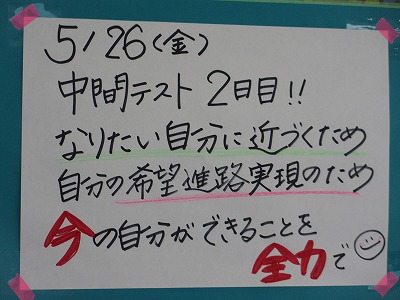 5/26(金)
中間テスト 2日目!!
なりたい自分に近づくため
自分の希望進路実現のため
今の自分ができることを
全力で